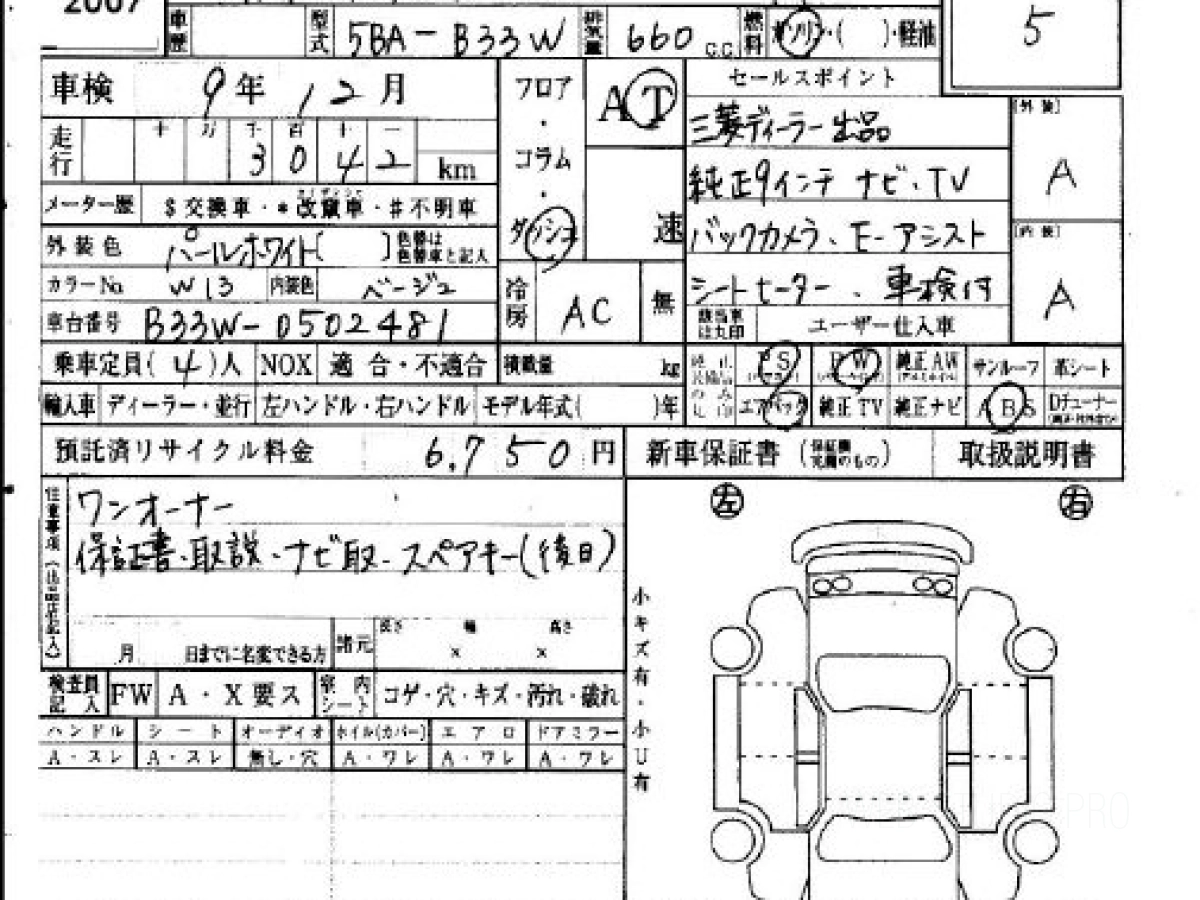 2007
車歴 型式 5BA-B33W 排気量 660 C.C. 燃料 ガソリン・( )・軽油
5
車検 9年12月
フロア・コラム・ダッシュ
AT
速
セールスポイント
三菱ディーラー出品
純正9インチ ナビ・TV
バックカメラ、E-アシスト
シートヒーター、車検付
該当車は丸印 ユーザー仕入車
[外装]
A
[内装]
A
走行 十 万 千 百 十 一
3 0 4 2 km
メーター歴 $交換車・*改竄車・#不明車
外装色 パールホワイト[ ]色替は色替車と記入
カラーNo W13 内装色 ベージュ
冷房 AC 無
車台番号 B33W-0502481
乗車定員(4)人 NOX 適合・不適合 積載量 kg
PS PW 純正AW サンルーフ 革シート
輸入車 ディーラー・並行 左ハンドル・右ハンドル モデル年式( )年
エアバック 純正TV 純正ナビ ABS Dチューナー
預託済リサイクル料金 6,750円 新車保証書 (保証機完備のもの) 取扱説明書
注意事項(出品店記入)
ワンオーナー
保証書・取説・ナビ取・スペアキー(後日)
月 日までに名変できる方 諸元 長さ × 幅 × 高さ
検査員記入 FW A・X要ス 室内シート コゲ・穴・キズ・汚れ・破れ
ハンドル シート オーディオ ホイル(カバー) エアロ ドアミラー
A・スレ A・スレ 無し・穴 A・ワレ A・ワレ A・ワレ
左 右
小キズ有・小U有
PRO